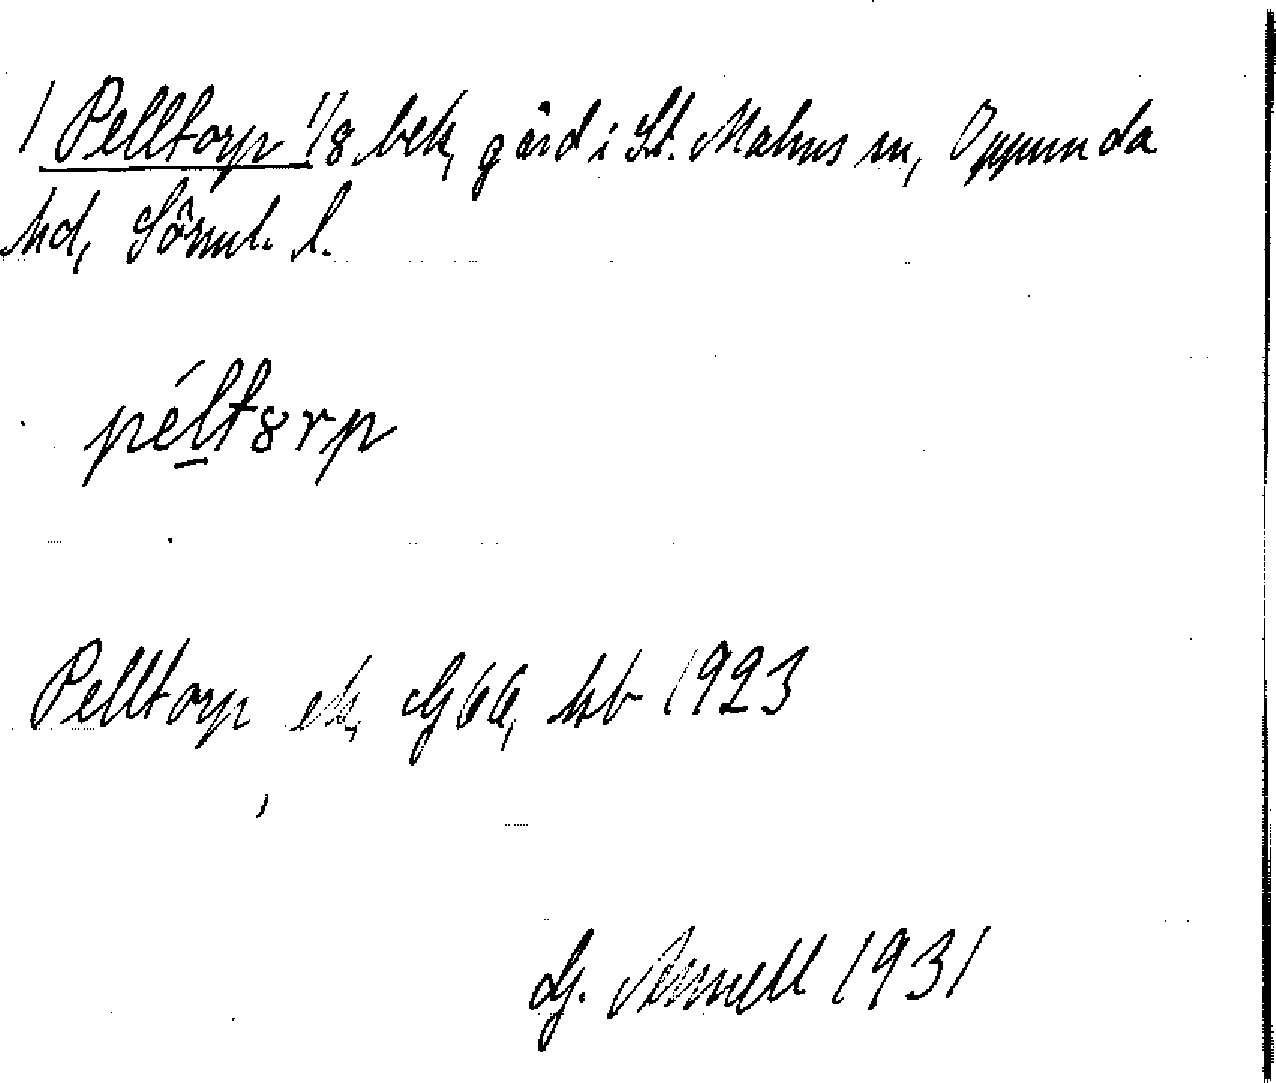 1 Pelltorp 1/8 bek, gård i St. Malms sn, Oppunda
hd, Sörml. l.
péltȣrp
Pelltorp ek, G 66, hb 1923
G. Arnell 1931